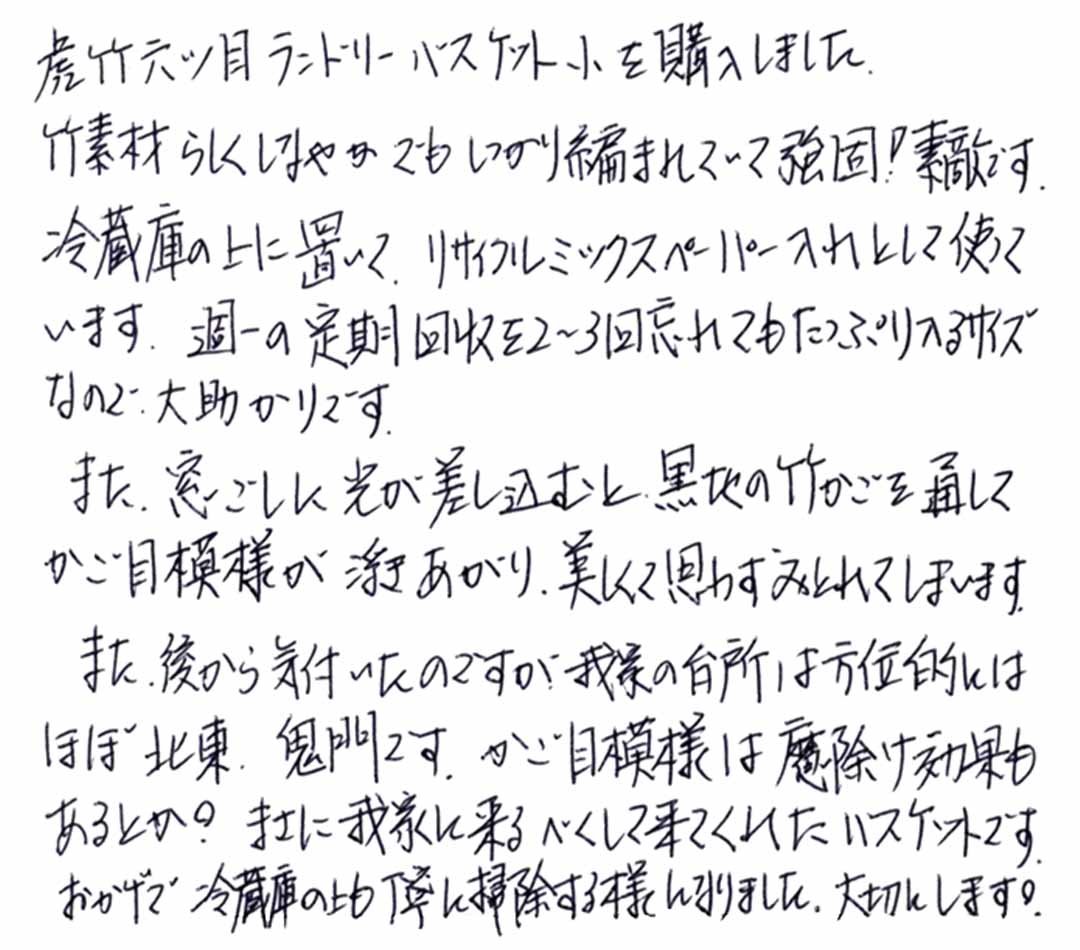 虎竹六ツ目ランドリーバスケット小を購入しました.
竹素材らしくしなやかでもしっかり編まれていて強固!素敵です.
冷蔵庫の上に置いて、リサイクルミックスペーパー入れとして使って
います. 週一の定期回収を2~3回忘れてもたっぷり入るサイズ
なので、大助かりです.
また、窓ごしに光が差し込むと、黒地の竹かごを通して
かご目模様が浮きあがり、美しくて思わずみとれてしまいます.
また、後から気付いたのですが、我家の台所は方位的には
ほぼ北東、鬼門です. かご目模様は魔除け効果も
あるとか? まさに我家に来るべくして来てくれたバスケットです.
おかげで冷蔵庫の上も丁寧に掃除する様になりました. 大切にします!